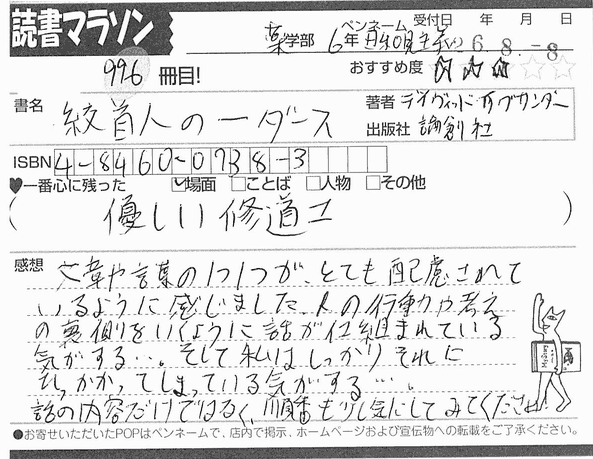 読書マラソン
受付日 年 月 日
薬学部 6年 ペンネーム 6.8.-8
996 冊目!
おすすめ度 ☆☆☆☆☆
書名 絞首人の一ダース
著者 デイヴィッド・アリグザンダー
出版社 論創社
ISBN 4-8460-0738-3
♥一番心に残った 場面 ことば 人物 その他
( 優しい修道士 )
感想 文章や言葉の1つ1つが、とても配慮されて
いるように感じました。人の行動や考え
の裏側をいくように話が仕組まれている
気がする…。そして私はしっかりそれに
ひっかかってしまっている気がする…。
話の内容だけではなく、順番も少し気にしてみてください
●お寄せいただいたPOPはペンネームで、店内で掲示、ホームページおよび宣伝物への転載をご了承ください。